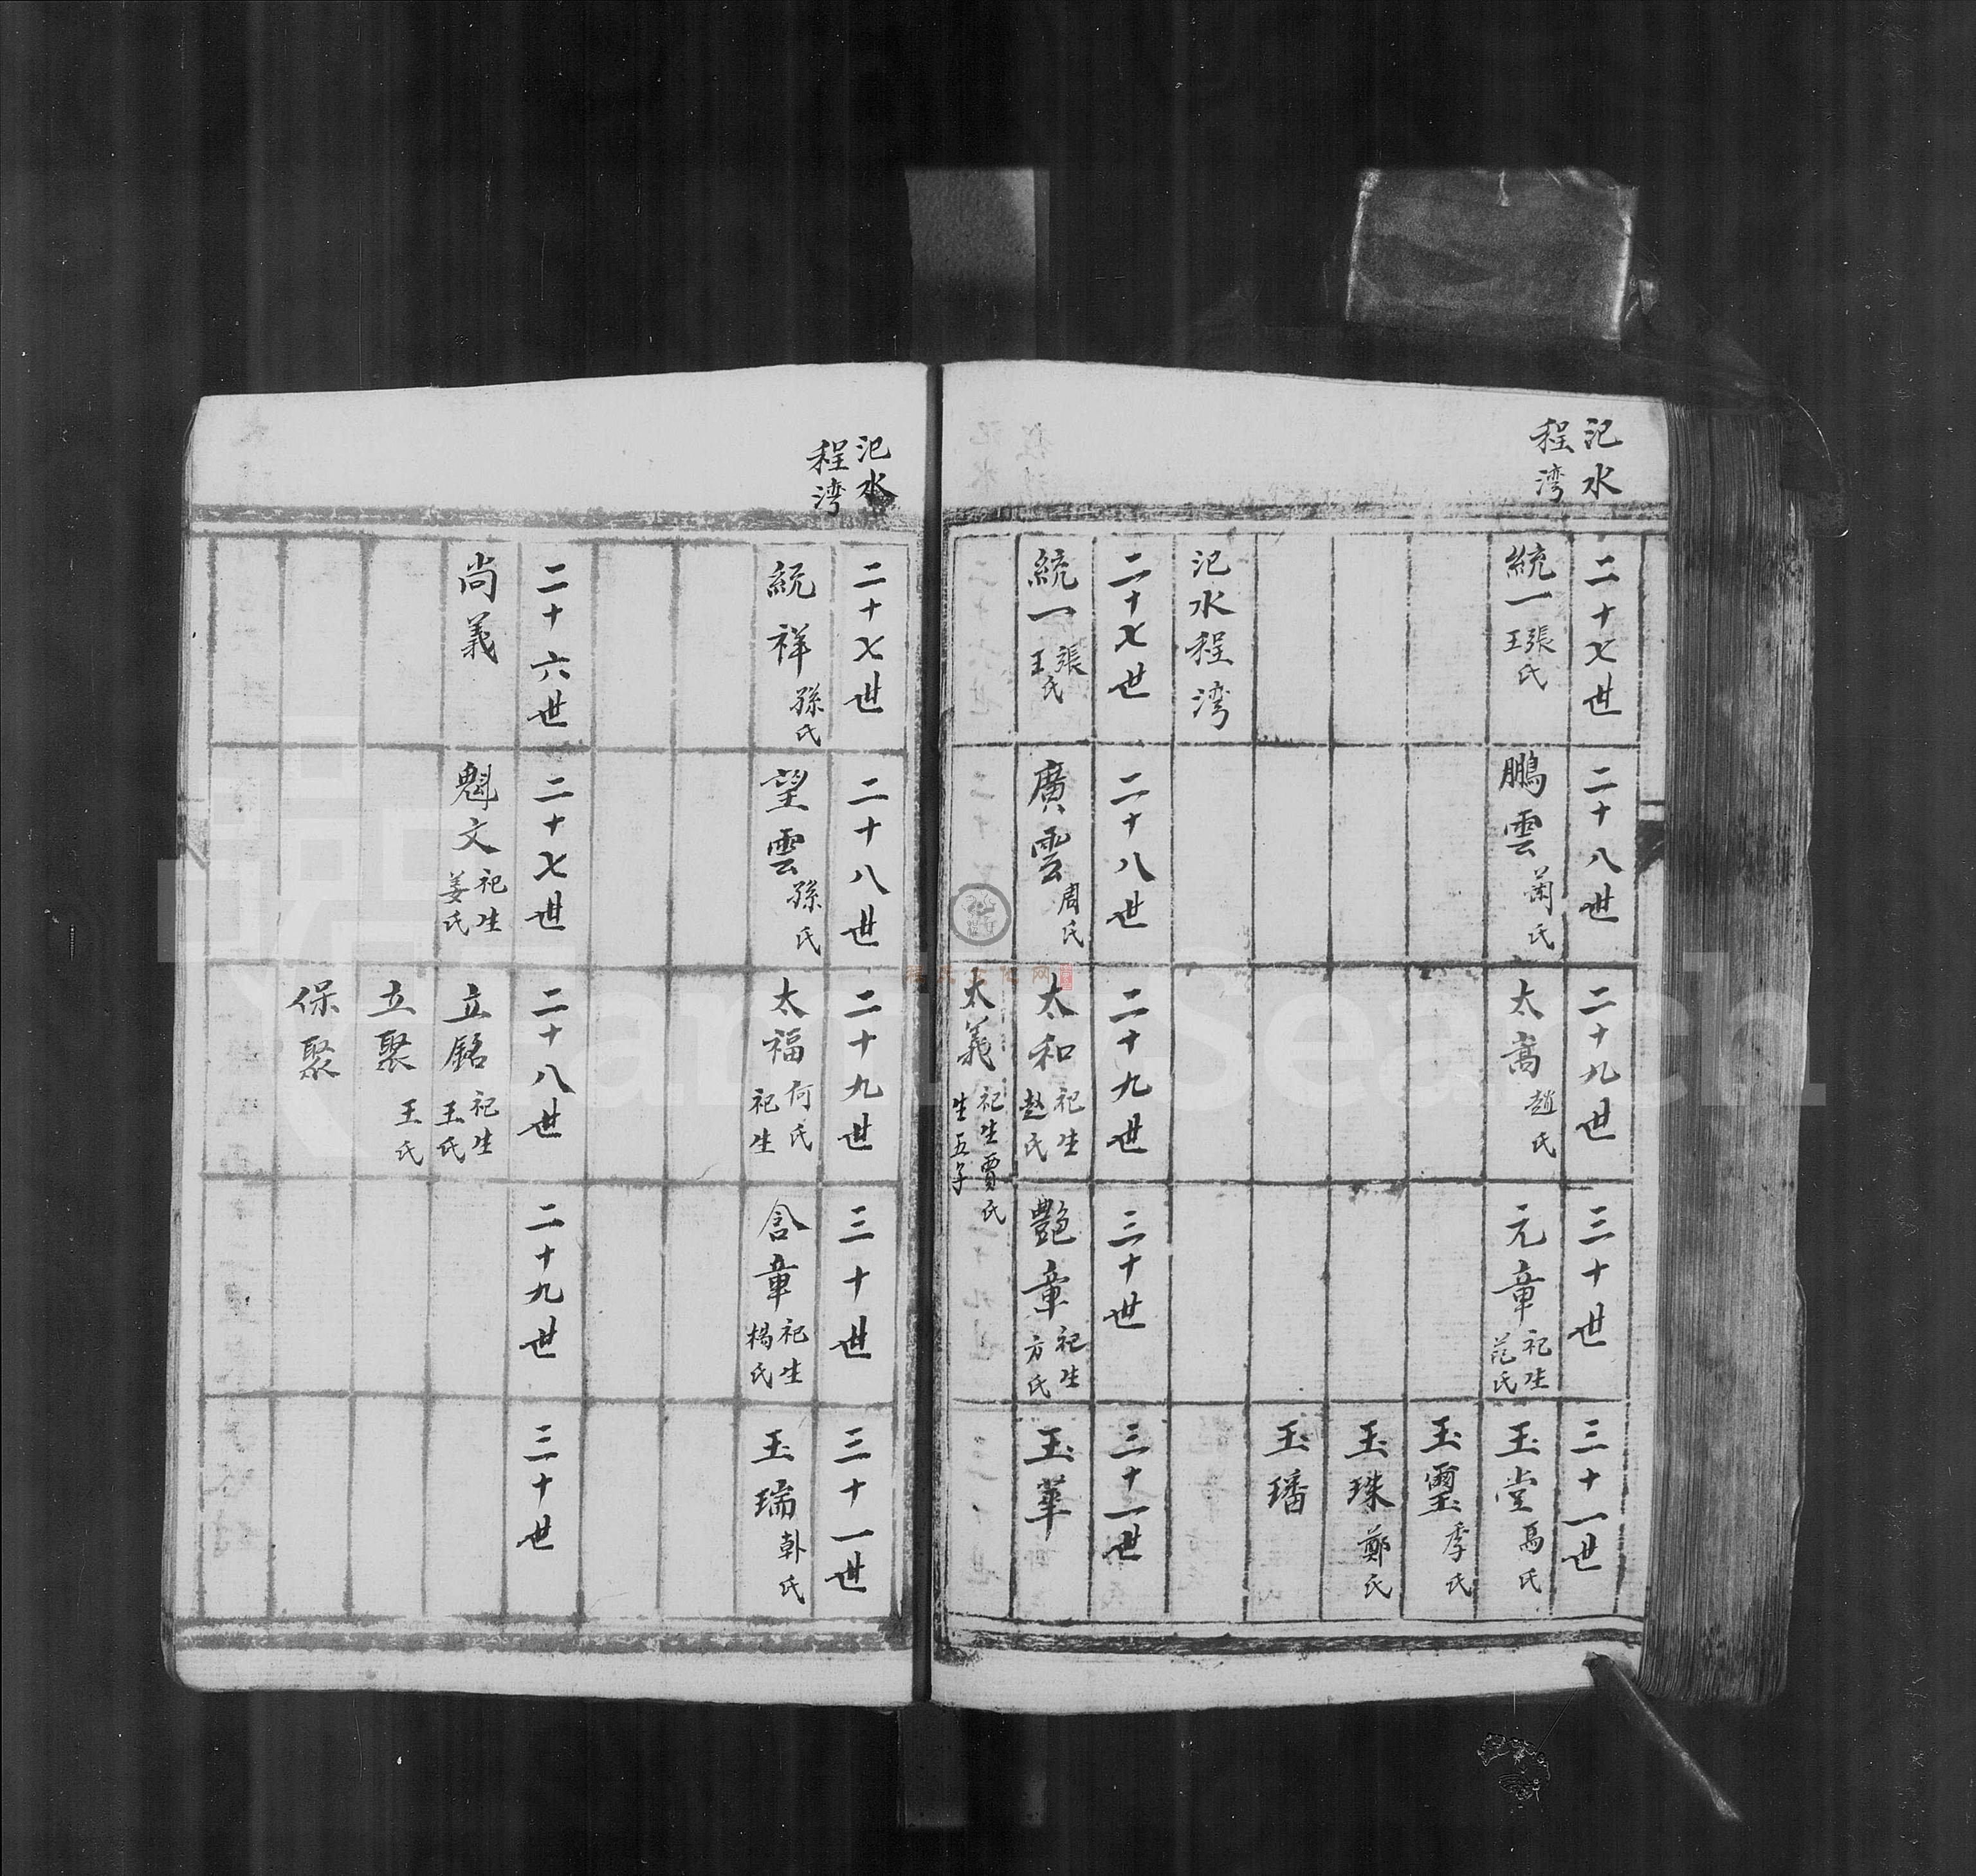 汜水
程湾
二十七世
二十八世
二十九世
三十世
三十一世
統一 張王氏
鵬雲 蕭氏
太嵩 趙氏
元章 祀生 范氏
玉堂 馬氏
玉璽 李氏
玉珠 鄭氏
玉璠
汜水程湾
二十七世
二十八世
二十九世
三十世
三十一世
統一 張王氏
廣雲 周氏
太和 祀生 赵氏
艶章 祀生 方氏
玉華
太義 祀生 賈氏 生五子
汜水
程湾
二十七世
二十八世
二十九世
三十世
三十一世
統祥 孫氏
望雲 孫氏
太福 何氏 祀生
含章 祀生 楊氏
玉瑞 韩氏
二十六世
二十七世
二十八世
二十九世
三十世
尚義
魁文 祀生 姜氏
立銘 祀生 王氏
立聚 王氏
保聚